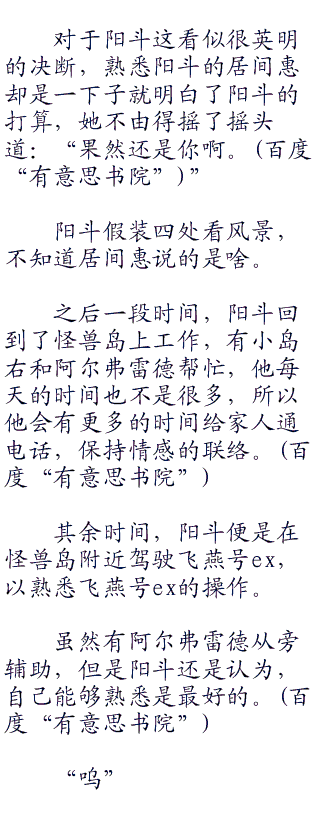 对于阳斗这看似很英明
的决断，熟悉阳斗的居间惠
却是一下子就明白了阳斗的
打算，她不由得摇了摇头
道：“果然还是你啊。(百度
“有意思书院”)”
阳斗假装四处看风景，
不知道居间惠说的是啥。
之后一段时间，阳斗回
到了怪兽岛上工作，有小岛
右和阿尔弗雷德帮忙，他每
天的时间也不是很多，所以
他会有更多的时间给家人通
电话，保持情感的联络。(百
度“有意思书院”)
其余时间，阳斗便是在
怪兽岛附近驾驶飞燕号ex，
以熟悉飞燕号ex的操作。
虽然有阿尔弗雷德从旁
辅助，但是阳斗还是认为，
自己能够熟悉是最好的。(百
度“有意思书院”)
“呜”